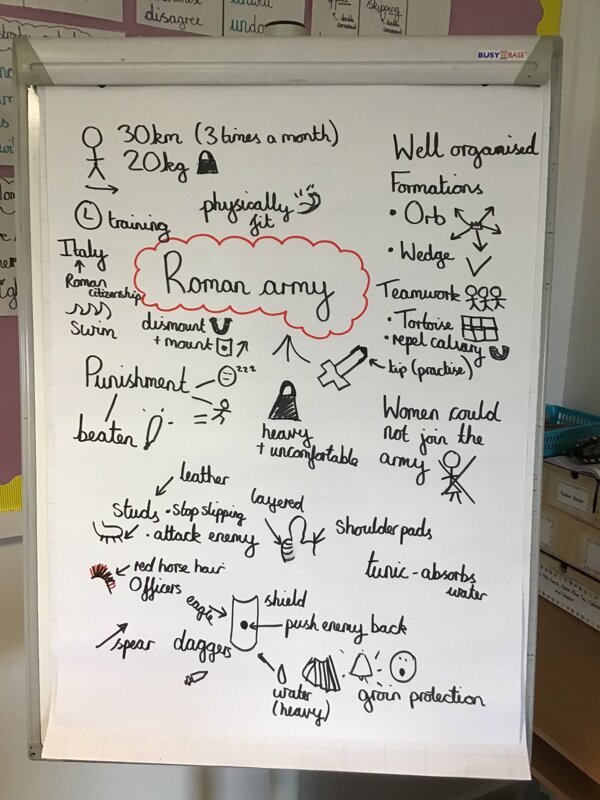 disagree
undo
skipping
BUSY BASE
30km (3 times a month)
20kg
Well organised
Formations
• Orb
• Wedge
physically
fit
training
Italy
Roman
citizenship
Swim
Roman army
dismount
+ mount
Teamwork
• Tortoise
• repel calvary
kip (practise)
Punishment
zzz
beaten
heavy
+ uncomfortable
Women could
not join the
army
leather
Studs • Stop slipping
• attack enemy
layered
Shoulder pads
red horse hair
Officers
tunic - absorbs
water
eagle
shield
push enemy back
spear
daggers
water
(heavy)
groin protection